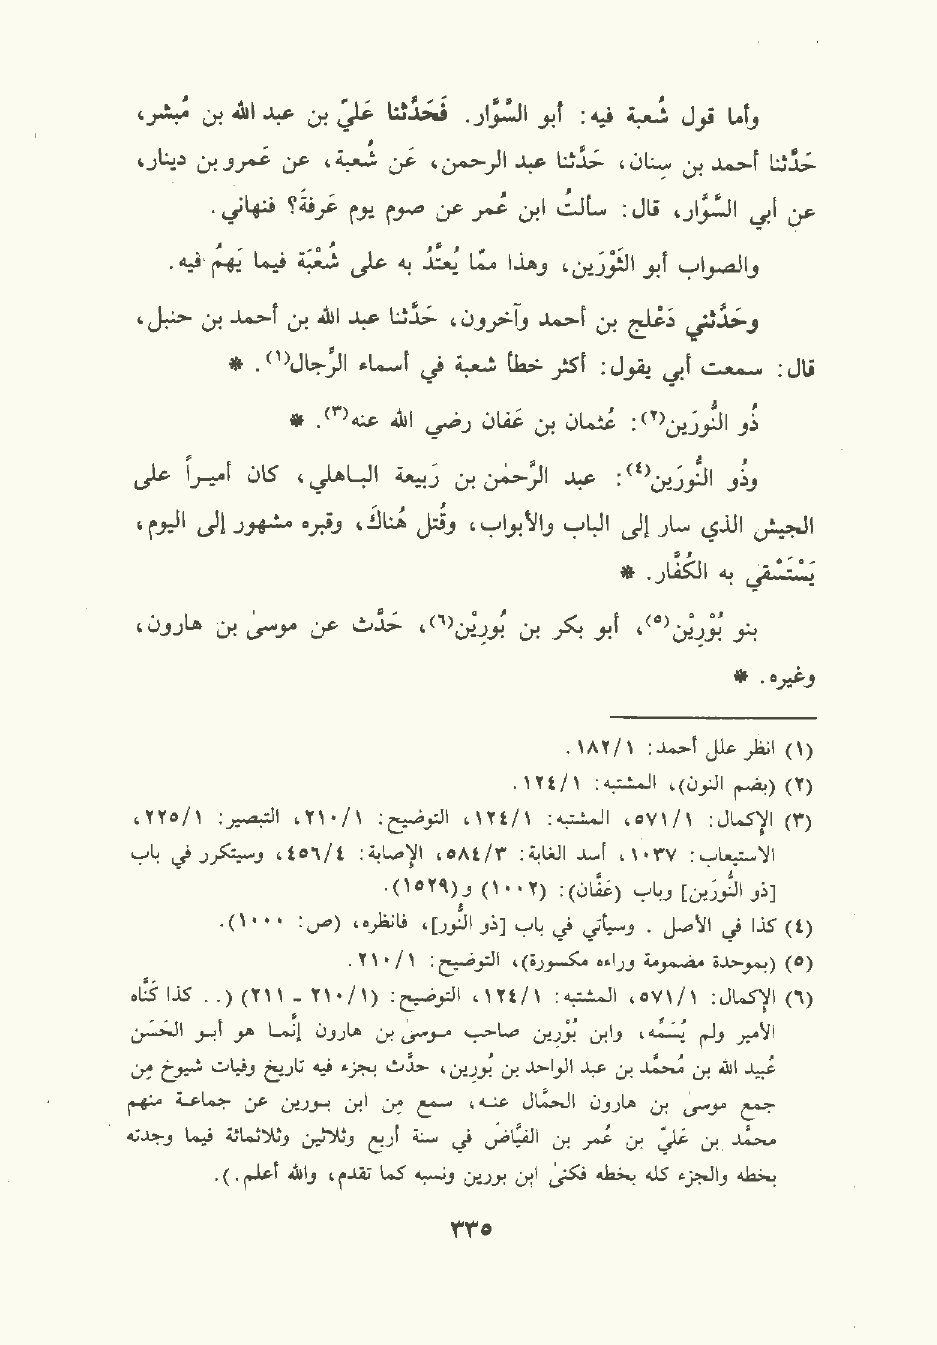 وأما قول شُعبة فيه: أبو السَّوَّار. فَحَدَّثنا عَليّ بن عبد الله بن مُبشر،
حَدَّثنا أحمد بن سنان، حَدَّثنا عبد الرحمن، عَن شُعبة، عن عَمرو بن دينار،
عن أبي السَّوَّار، قال: سألتُ ابن عُمر عن صوم يوم عَرفَةَ؟ فنهاني.
والصواب أبو الثَّوْرَين، وهذا ممّا يُعتَدُّ به على شُعْبَة فيما يَهِمُ فيه.
وحَدَّثني دَعْلج بن أحمد وآخرون، حَدَّثنا عبد الله بن أحمد بن حنبل،
قال: سمعت أبي يقول: أكثر خطأ شعبة في أسماء الرِّجال(١). *
ذُو النُّورَين(٢): عُثمان بن عَفان رضي الله عنه(٣). *
وذُو النُّورَين(٤): عبد الرَّحمٰن بن رَبيعة الباهلي، كان أميراً على
الجيش الذي سار إلى الباب والأبواب، وقُتِل هُناكَ، وقبره مشهور إلى اليوم،
يَسْتَسْقي به الكُفَّار. *
بنو بُوْرِيْن(٥)، أبو بكر بن بُورِيْن(٦)، حَدَّث عن موسىٰ بن هارون،
وغيره. *
(١) انظر علل أحمد: ١/١٨٢.
(٢) (بضم النون)، المشتبه: ١/١٢٤.
(٣) الإكمال: ١/٥٧١، المشتبه: ١/١٢٤، التوضيح: ١/٢١٠، التبصير: ١/٢٢٥،
الاستيعاب: ١٠٣٧، أسد الغابة: ٣/٥٨٤، الإصابة: ٤/٤٥٦، وسيتكرر في باب
[ذو النُّورَين] وباب (عَفَّان): (١٠٠٢) و(١٥٢٩).
(٤) كذا في الأصل. وسيأتي في باب [ذو النُّور]، فانظره، (ص: ١٠٠٠).
(٥) (بموحدة مضمومة وراء مكسورة)، التوضيح: ١/٢١٠.
(٦) الإكمال: ١/٥٧١، المشتبه: ١/١٢٤، التوضيح: (١/٢١٠ - ٢١١) (.. كذا كَنَّاه
الأمير ولم يُسَمِّه، وابن بُوْرين صاحب موسىٰ بن هارون إنَّما هو أبو الحَسَن
عُبيد الله بن مُحمَّد بن عبد الواحد بن بُورين، حدَّث بجزء فيه تاريخ وفيات شيوخ مِن
جمع موسىٰ بن هارون الحمَّال عنه، سمع مِن ابن بورين عن جماعة منهم
محمَّد بن عَليّ بن عُمر بن الفيَّاض في سنة أربع وثلاثين وثلاثمائة فيما وجدته
بخطه والجزء كله بخطه فكنىٰ ابن بورين ونسبه كما تقدم، والله أعلم.).
٣٣٥